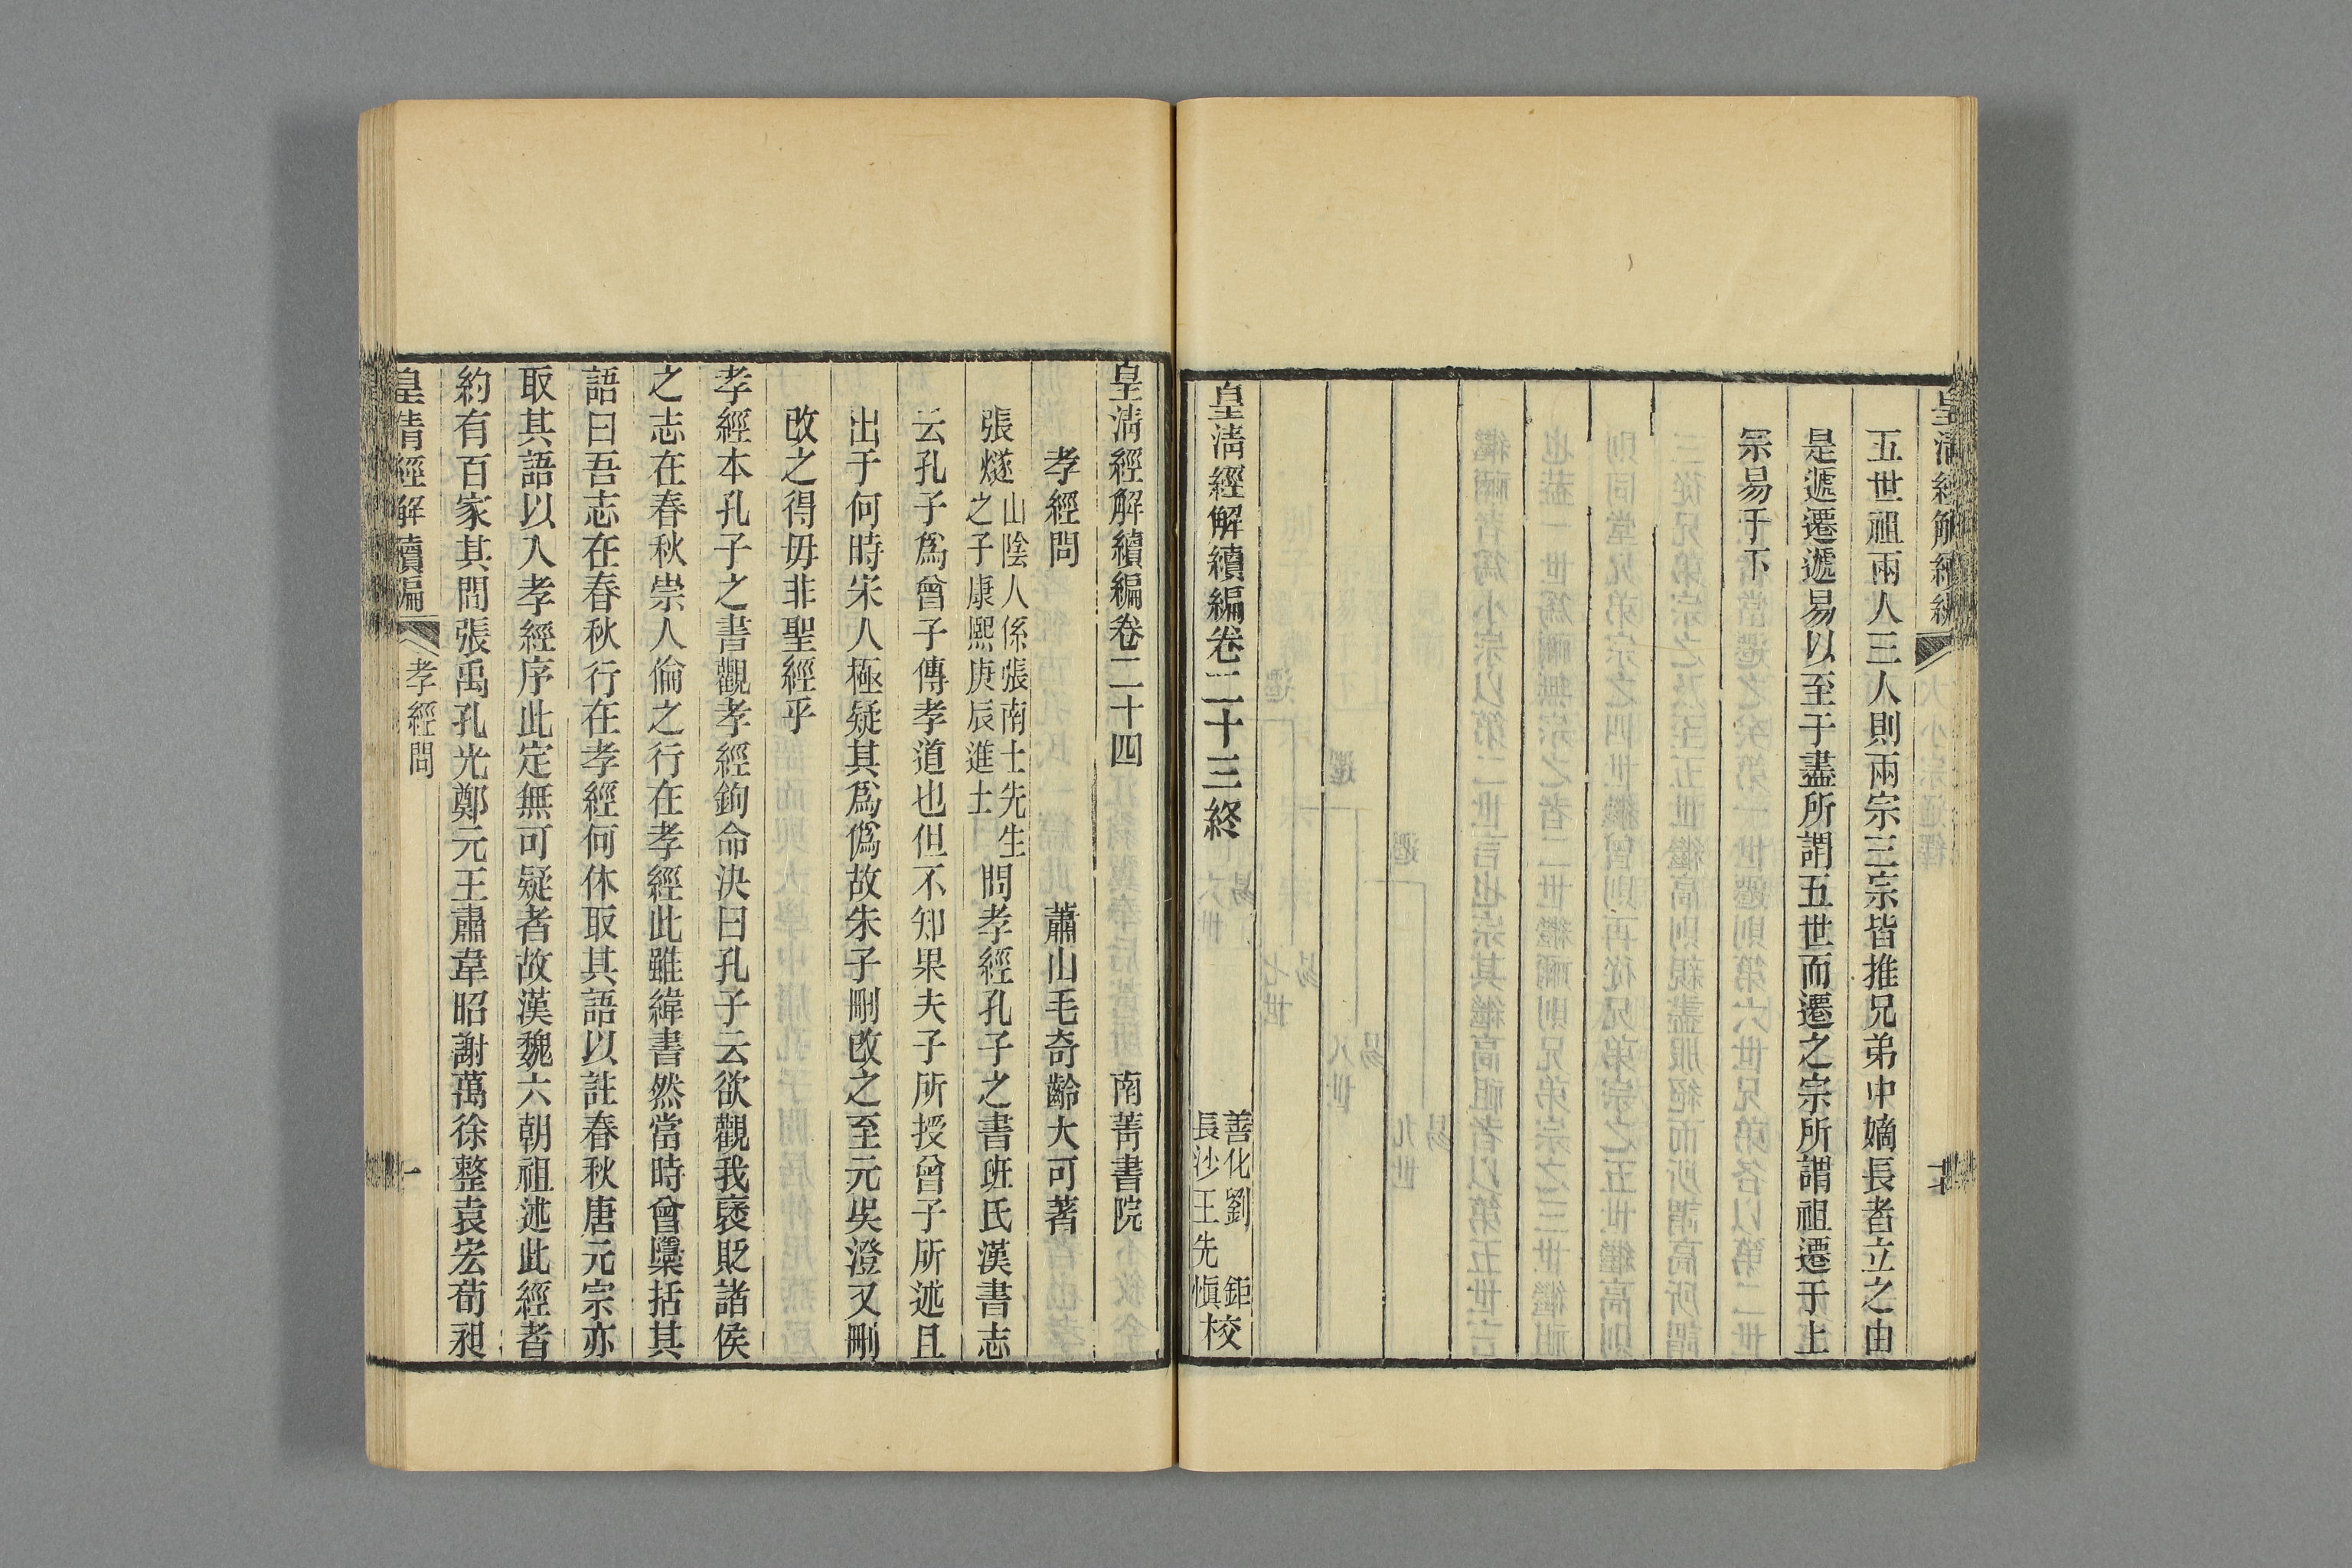 皇清經解續編
大小宗通釋
五世祖兩人三人則兩宗三宗皆推兄弟中嫡長者立之由
是遞遷遞易以至于盡所謂五世而遷之宗所謂祖遷于上
宗易于下
皇清經解續編卷二十三終
善化劉鉅
長沙王先慎校
皇清經解續編卷二十四
南菁書院
孝經問
蕭山毛奇齡大可著
張燧山陰人係張南士先生之子康熙庚辰進士問孝經孔子之書班氏漢書志
云孔子爲曾子傳孝道也但不知果夫子所授曾子所述且
出于何時宋人極疑其爲僞故朱子刪改之至元吳澄又刪
改之得毋非聖經乎
孝經本孔子之書觀孝經鉤命決曰孔子云欲觀我褒貶諸侯
之志在春秋崇人倫之行在孝經此雖緯書然當時曾櫽括其
語曰吾志在春秋行在孝經何休取其語以註春秋唐元宗亦
取其語以入孝經序此定無可疑者故漢魏六朝祖述此經者
約有百家其間張禹孔光鄭元王肅韋昭謝萬徐整袁宏荀昶
皇清經解續編
孝經問
一